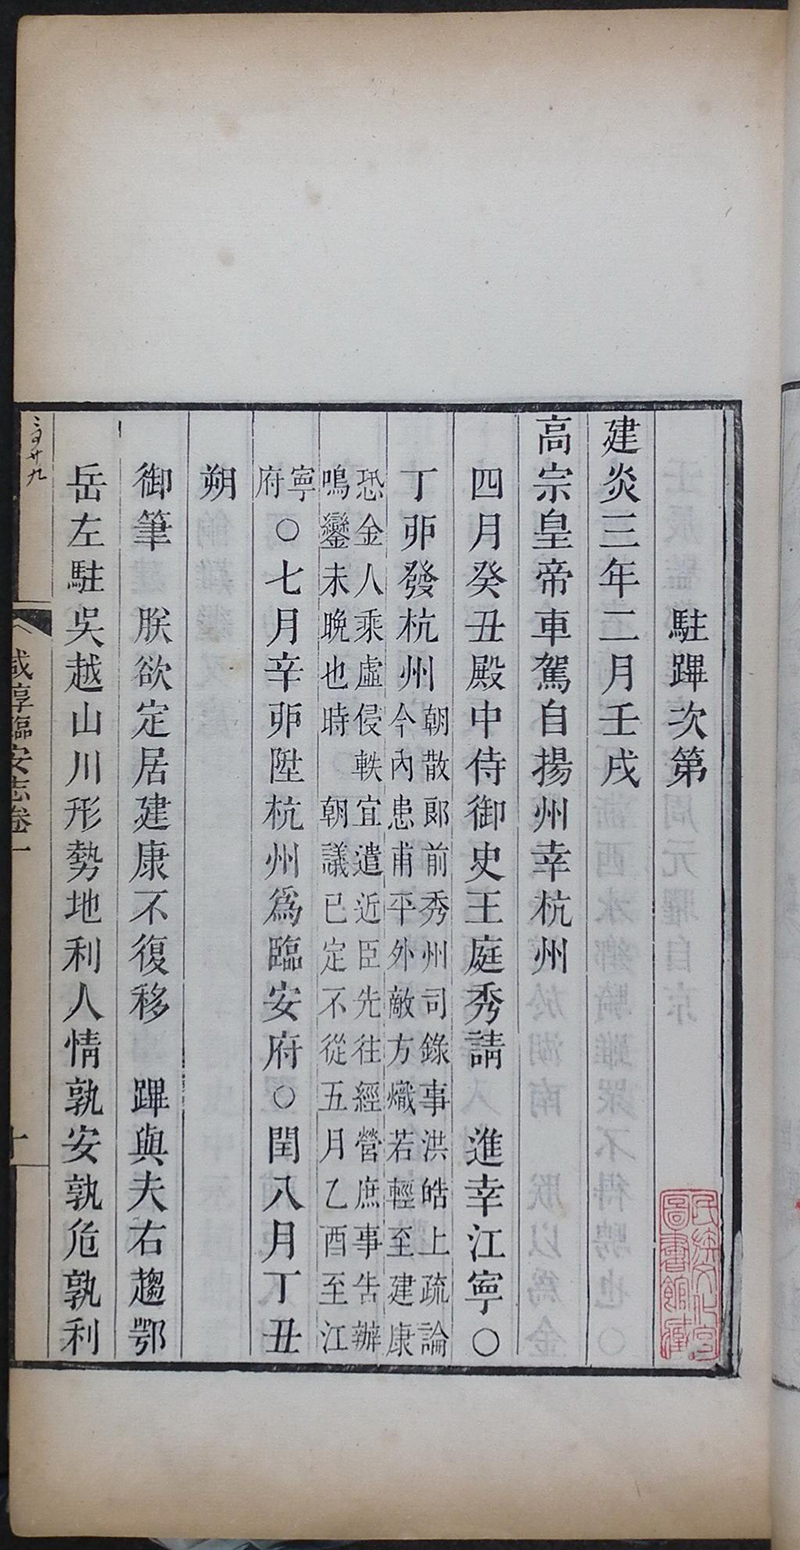 駐蹕次第
建炎三年二月壬戌
高宗皇帝車駕自揚州幸杭州
四月癸丑殿中侍御史王庭秀請 進幸江寧○
丁卯發杭州
朝散郞前秀州司錄事洪皓上疏論
今內患甫平外敵方熾若輕至建康
恐金人乘虛侵軼宜遣近臣先往經營庶事告辦
鳴鑾未晚也時 朝議已定不從五月乙酉至江
寧
府
○七月辛卯陞杭州爲臨安府○閏八月丁丑
朔
御筆 朕欲定居建康不復移 蹕與夫右趨鄂
岳左駐吳越山川形勢地利人情孰安孰危孰利
咸淳臨安志卷一
十
民族文化宮
圖書館藏